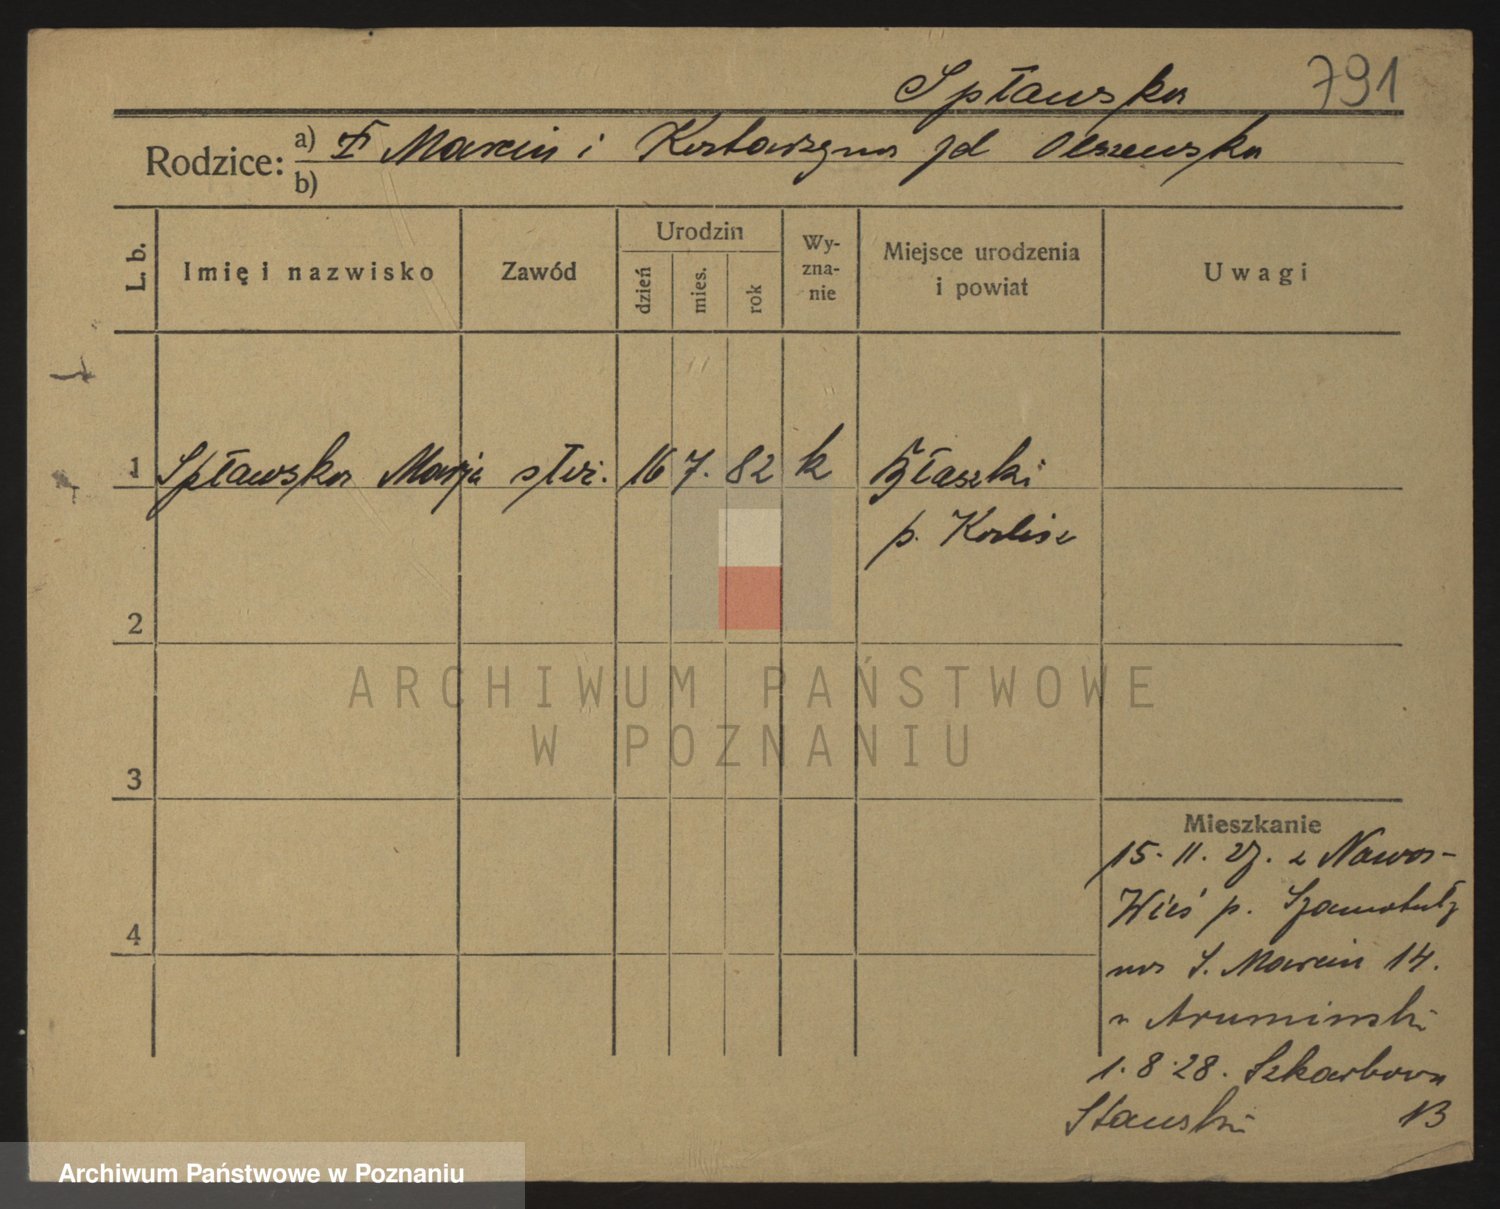 Spławska 791
Rodzice: a) Marcin i Katarzyna Olszewska
b)
L. b. Imię i nazwisko Zawód Urodzin dzień mies. rok Wyznanie Miejsce urodzenia i powiat Uwagi
1 Spławska Marja służ. 16 7. 82 k Błaszki
p. Kalisz
2
ARCHIWUM PAŃSTWOWE
W POZNANIU
3
Mieszkanie
15. 11. 27. z Nowa-
Wieś p. Szamotuły
4
na S. Marcin 14.
u
1. 8. 28. Szkarbowa
Stawski 13
Archiwum Państwowe w Poznaniu